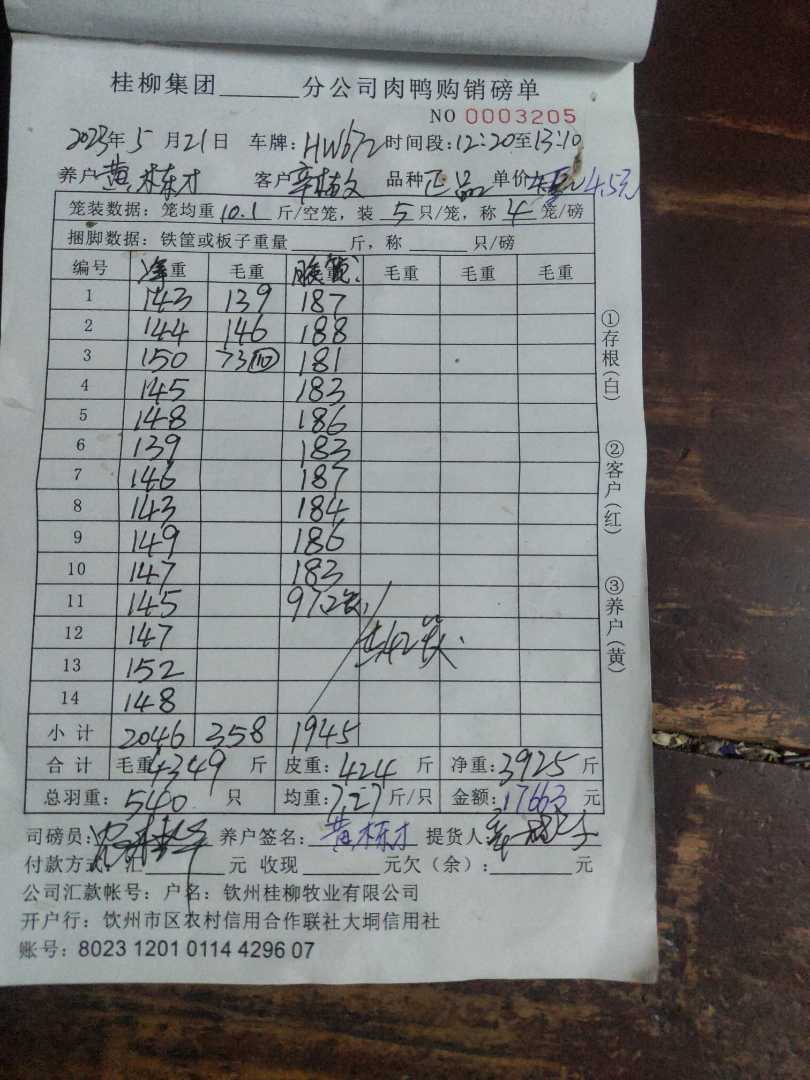 桂柳集团______分公司肉鸭购销磅单
NO 0003205
2023年5月21日 车牌:HW672 时间段:12:20至13:10
养户 黄栋才 客户 品种 正品 单价 4.5元
笼装数据:笼均重10.1斤/空笼,装5只/笼,称4笼/磅
捆脚数据:铁筐或板子重量______斤,称______只/磅
编号 净重 毛重 毛重 毛重 毛重
1 143 139 187
2 144 146 188
3 150 73 181
4 145 183
5 148 186
6 139 183
7 146 187
8 143 184
9 149 186
10 147 183
11 145 97
12 147
13 152
14 148
小计 2046 358 1945
合计 毛重:4349斤 皮重:424斤 净重:3925斤
总羽重:540只 均重:7.27斤/只 金额:17663元
司磅员: 养户签名:黄栋才 提货人
付款方式:汇______元 收现______元欠(余):______元
公司汇款帐号:户名:钦州桂柳牧业有限公司
开户行:饮州市区农村信用合作联社大垌信用社
账号:8023 1201 0114 4296 07
①存根(白)
②客户(红)
③养户(黄)